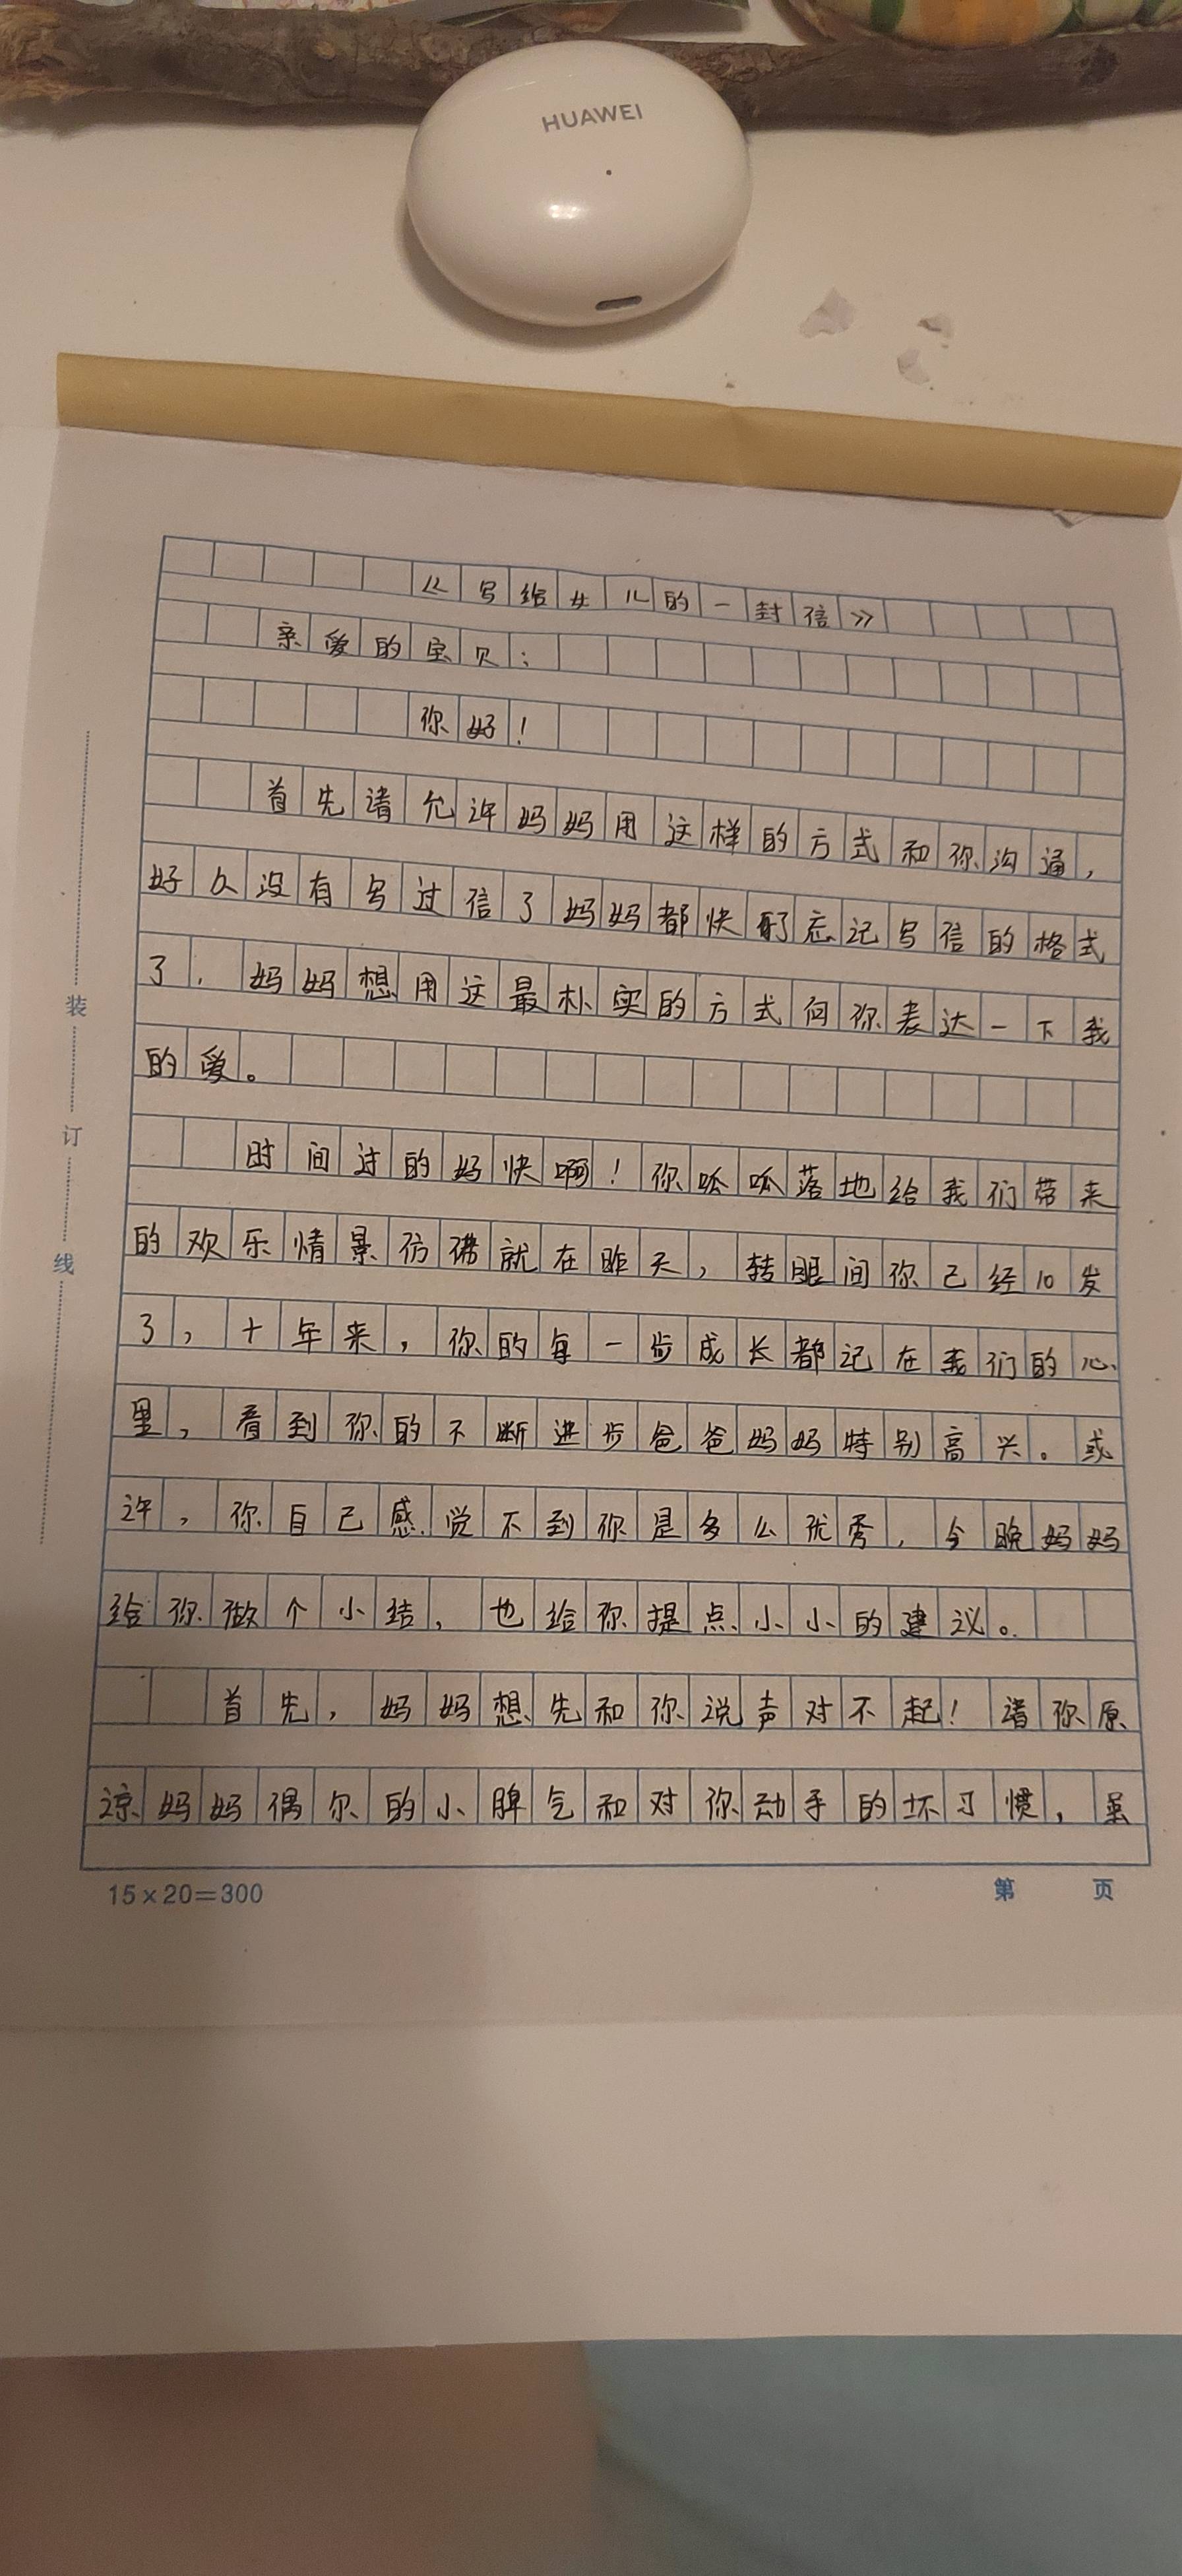 HUAWEI
《写给女儿的一封信》
亲爱的宝贝:
你好!
首先请允许妈妈用这样的方式和你沟通,
好久没有写过信了妈妈都快忘记写信的格式
了,妈妈想用这最朴实的方式向你表达一下我
的爱。
时间过的好快啊!你呱呱落地给我们带来
的欢乐情景仿佛就在昨天,转眼间你已经10岁
了,十年来,你的每一步成长都记在我们的心
里,看到你的不断进步爸爸妈妈特别高兴。或
许,你自己感觉不到你是多么优秀,今晚妈妈
给你做个小结,也给你提点小小的建议。
首先,妈妈想先和你说声对不起!请你原
谅妈妈偶尔的小脾气和对你动手的坏习惯,虽
15×20=300
第 页
装
订
线